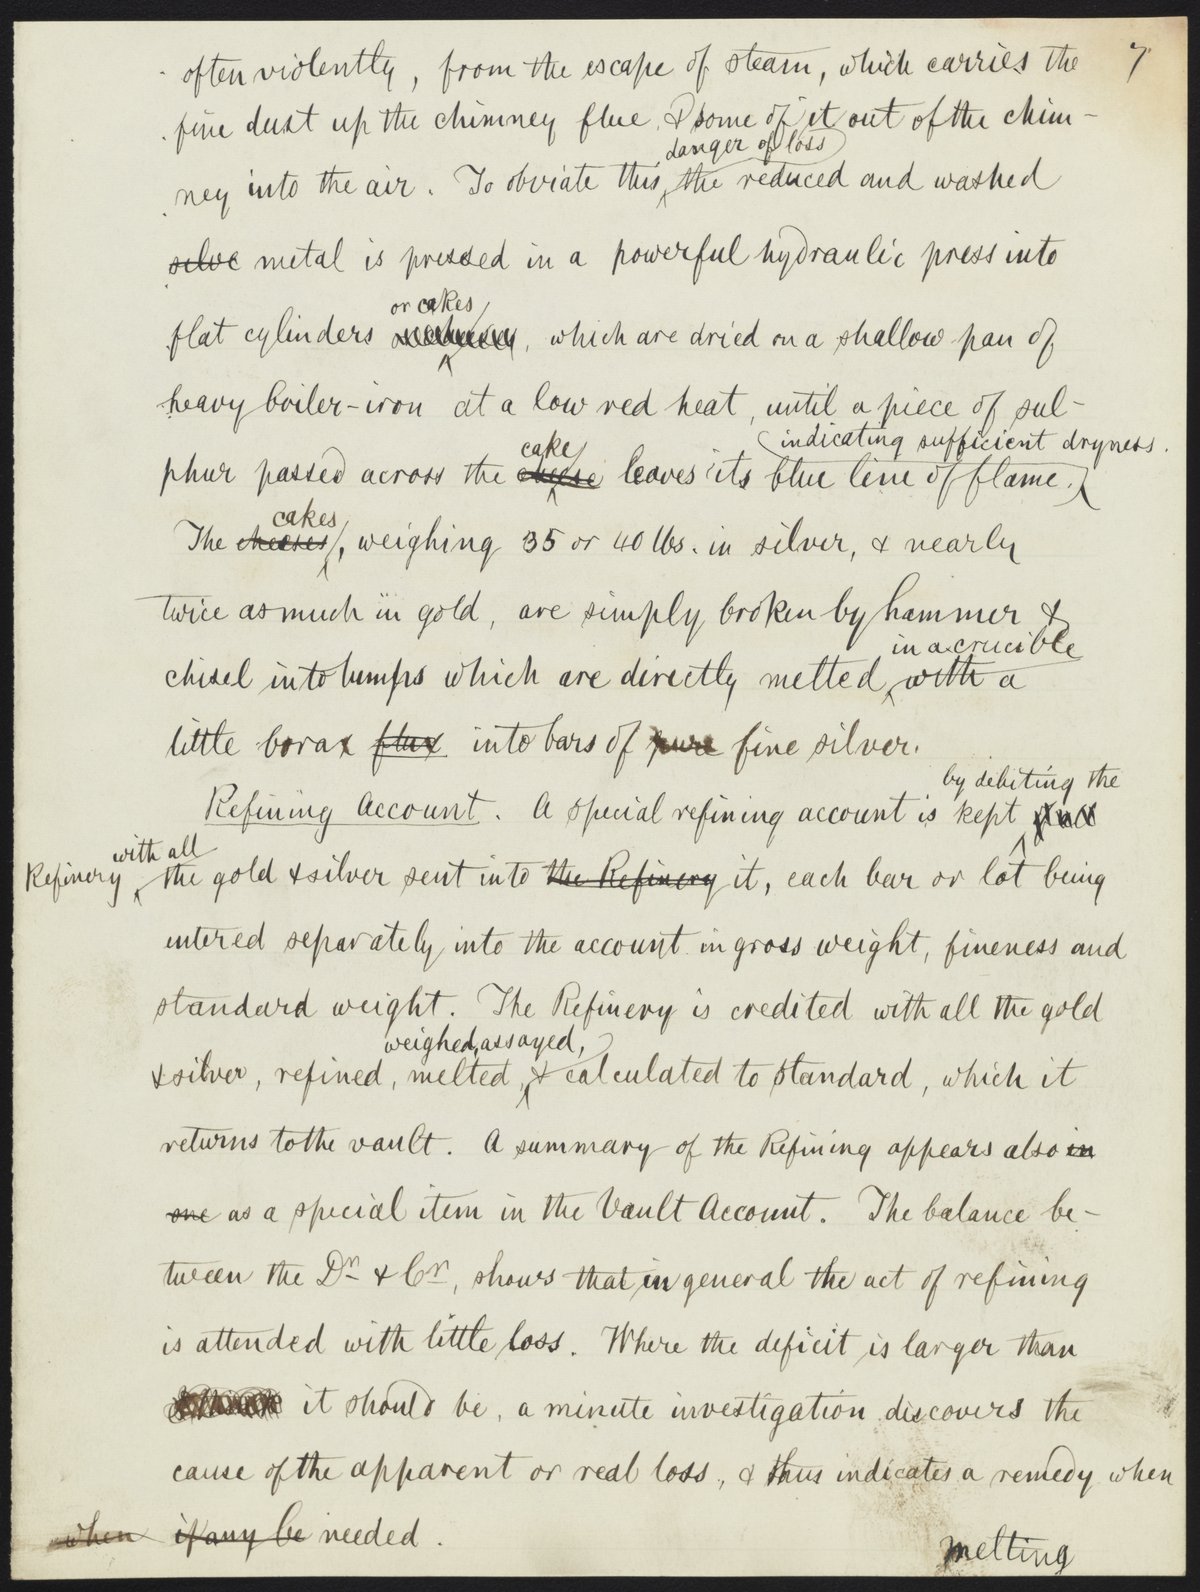 7
often violently, from the escape of steam, which carries the
fine dust up the chimney flue & some of it out of the chim-
danger of loss
ney into the air. To obviate this, the reduced and washed
silve metal is pressed in a powerful hydraulic press into
or cakes
flat cylinders , which are dried on a shallow pan of
heavy boiler-iron at a low red heat, until a piece of sul-
indicating sufficient dryness.
cake
phur passed across the cheese leaves its blue line of flame.
cakes
The cheeses, weighing 35 or 40 lbs. in silver, & nearly
twice as much in gold, are simply broken by hammer &
in a crucible
chisel into lumps which are directly melted with a
little borax flux into bars of pure fine silver.
by debiting the
Refining Account. A special refining account is kept
with all
Refinery the gold & silver sent into the Refinery it, each bar or lot being
entered separately into the account in gross weight, fineness and
standard weight. The Refinery is credited with all the gold
weighed, assayed,
& silver, refined, melted, & calculated to standard, which it
returns to the vault. A summary of the Refining appears also in
one as a special item in the Vault Account. The balance be-
tween the Dr & Cr, shows that in general the act of refining
is attended with little loss. Where the deficit is larger than
it should be, a minute investigation discovers the
cause of the apparent or real loss, & thus indicates a remedy when
when if any be needed.
Melting